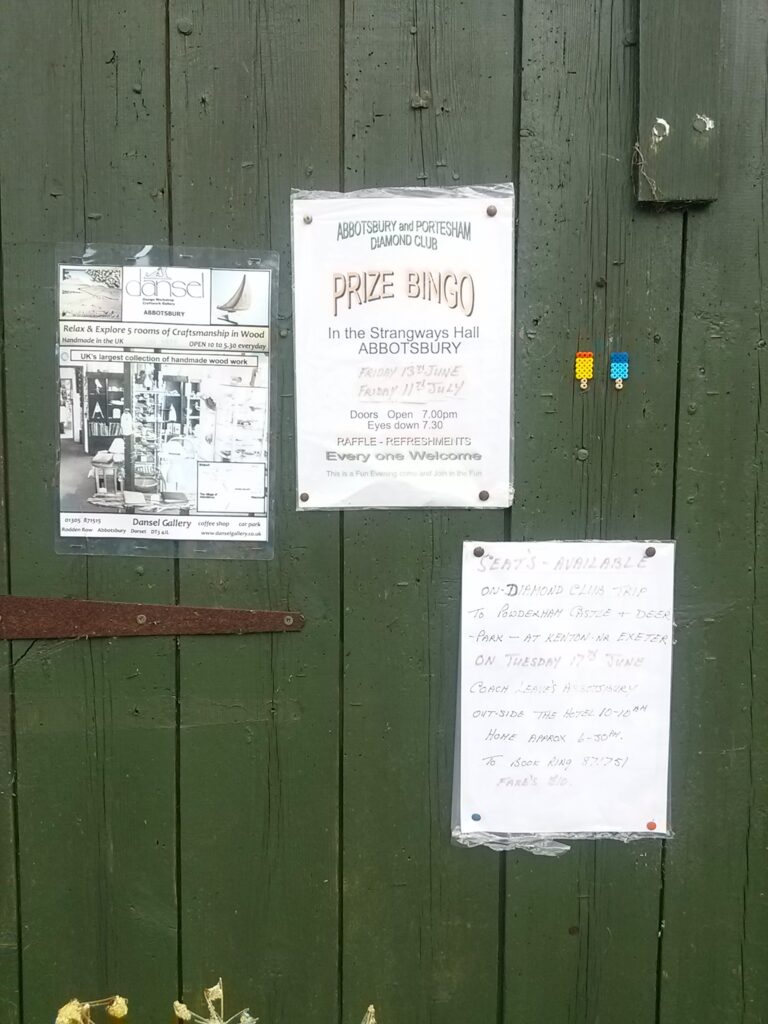 dansel
Design Workshop
Craftwork Gallery
ABBOTSBURY
Relax & Explore 5 rooms of Craftsmanship in Wood
Handmade in the UK OPEN 10 to 5.30 everyday
UK's largest collection of handmade wood work
01305 871515 Dansel Gallery coffee shop car park
Rodden Row Abbotsbury Dorset DT3 4JL www.danselgallery.co.uk
ABBOTSBURY and PORTESHAM
DIAMOND CLUB
PRIZE BINGO
In the Strangways Hall
ABBOTSBURY
FRIDAY 13TH JUNE
FRIDAY 11TH JULY
Doors Open 7.00pm
Eyes down 7.30
RAFFLE - REFRESHMENTS
Every one Welcome
This is a Fun Evening come and Join in the Fun
SEAT'S - AVAILABLE
ON - DIAMOND CLUB TRIP
TO POWDERHAM CASTLE + DEER
-PARK - AT KENTON - NR EXETER
ON TUESDAY 17TH JUNE
COACH LEAVE'S ABBOTSBURY
OUT-SIDE THE HOTEL 10-10AM
HOME APPROX 6-30PM.
TO BOOK RING 871751
FARE'S £10.